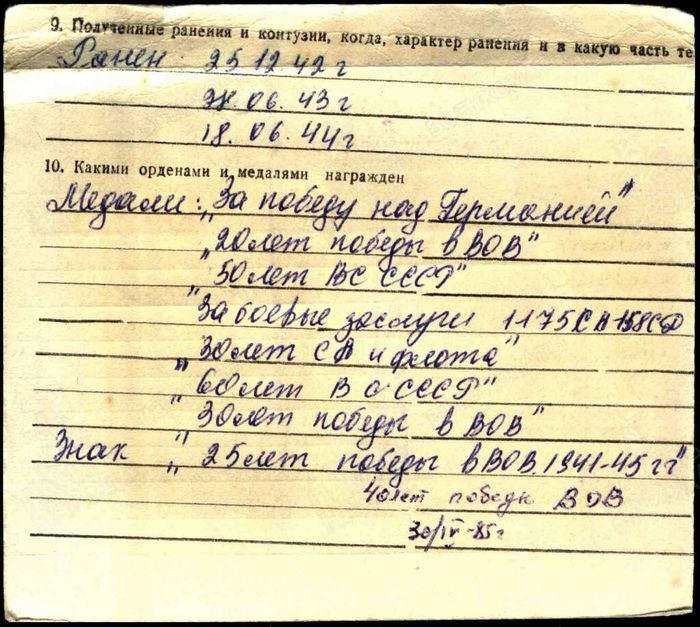 9. Полученные ранения и контузии, когда, характер ранения и в какую часть те
Ранен 25.12.42 г
28.06.43 г
18.06.44 г
10. Какими орденами и медалями награжден
Медали: „За победу над Германией"
„20 лет победы в ВОВ"
„50 лет ВС СССР"
„За боевые заслуги 1175
„30 лет СА и флота"
„60 лет ВС СССР"
„30 лет победы в ВОВ"
Знак „25 лет победы в ВОВ. 1941-45 гг"
40 лет победы ВОВ
30/IV-85 г